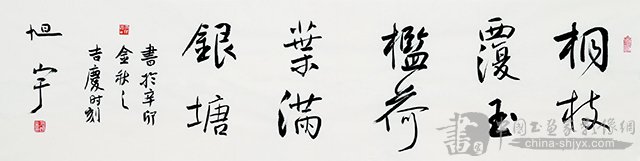 桐枝
覆玉
檻荷
葉滿
銀塘
書於辛卯
金秋之
吉慶时刻
旭宇
www.china-shjyx.com